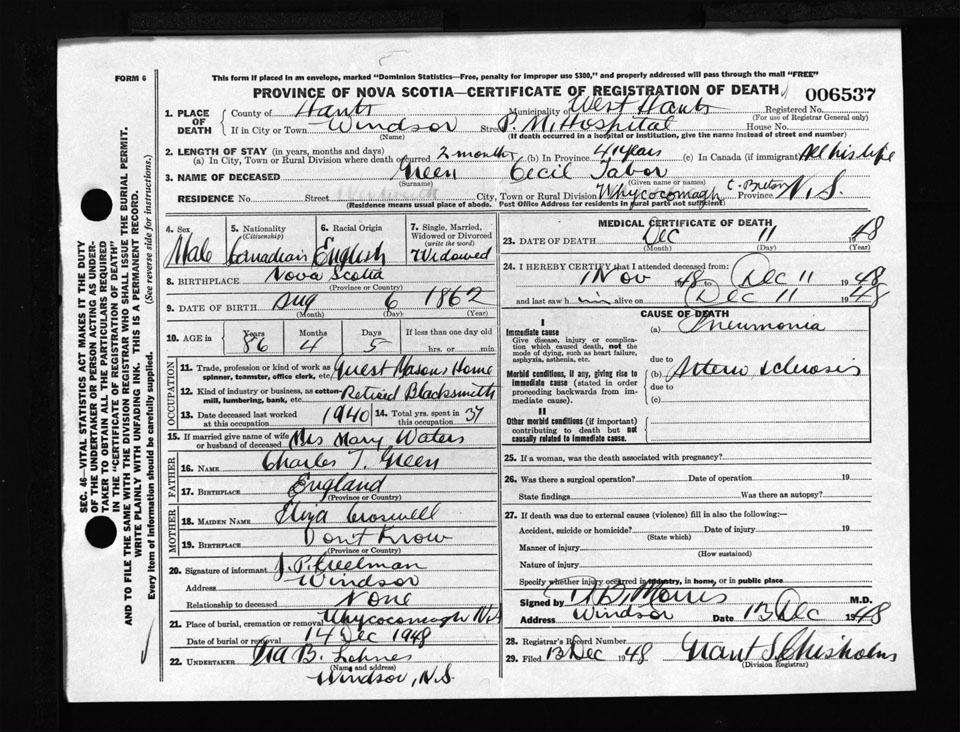 FORM 6
This form if placed in an envelope, marked "Dominion Statistics—Free, penalty for improper use $300," and properly addressed will pass through the mail "FREE"
PROVINCE OF NOVA SCOTIA—CERTIFICATE OF REGISTRATION OF DEATH 006537
1. PLACE OF DEATH County of Hants Municipality of West Hants Registered No.
(For use of Registrar General only)
If in City or Town Windsor Street P. M. Hospital House No.
(Name) (If death occurred in a hospital or institution, give the name instead of street and number)
2. LENGTH OF STAY (in years, months and days)
(a) In City, Town or Rural Division where death occurred 2 months (b) In Province 41 years (c) In Canada (if immigrant) All his life
3. NAME OF DECEASED Green Cecil Tabor
(Surname) (Given name or names)
RESIDENCE No. Street City, Town or Rural Division Whycocomagh C. Breton Province N.S.
(Residence means usual place of abode. Post Office Address for residents in rural parts not sufficient)
SEC. 46—VITAL STATISTICS ACT MAKES IT THE DUTY
OF THE UNDERTAKER OR PERSON ACTING AS UNDER-
TAKER TO OBTAIN ALL THE PARTICULARS REQUIRED
IN THE "CERTIFICATE OF REGISTRATION OF DEATH"
AND TO FILE THE SAME WITH THE DIVISION REGISTRAR WHO SHALL ISSUE THE BURIAL PERMIT.
WRITE PLAINLY WITH UNFADING INK. THIS IS A PERMANENT RECORD.
Every item of information should be carefully supplied. (See reverse side for instructions.)
4. Sex 5. Nationality (Citizenship) 6. Racial Origin 7. Single, Married, Widowed or Divorced (write the word)
Male Canadian English Widowed
8. BIRTHPLACE Nova Scotia
(Province or Country)
9. DATE OF BIRTH Aug 6 1862
(Month) (Day) (Year)
10. AGE in Years Months Days If less than one day old
86 4 5 hrs. or min.
OCCUPATION
11. Trade, profession or kind of work as spinner, teamster, office clerk, etc. Guest Masons Home
12. Kind of industry or business, as cotton-mill, lumbering, bank, etc. Retired Blacksmith
13. Date deceased last worked at this occupation 1940 14. Total yrs. spent in this occupation 37
15. If married give name of wife or husband of deceased Mrs Mary Waters
FATHER
16. NAME Charles T. Green
17. BIRTHPLACE England
(Province or Country)
MOTHER
18. MAIDEN NAME Eliza Croswell
19. BIRTHPLACE Don't Know
(Province or Country)
20. Signature of informant J. P. Creelman
Address Windsor
Relationship to deceased None
21. Place of burial, cremation or removal Whycocomagh N.S.
Date of burial or removal 14 Dec 1948
22. UNDERTAKER Ira B. Lohnes
(Name and address)
Windsor, N.S.
MEDICAL CERTIFICATE OF DEATH
23. DATE OF DEATH Dec 11 1948
(Month) (Day) (Year)
24. I HEREBY CERTIFY that I attended deceased from:
1 Nov 1948 to Dec 11 1948
and last saw him alive on Dec 11 1948
CAUSE OF DEATH
I
Immediate cause (a) Pneumonia
Give disease, injury or complication which caused death, not the mode of dying, such as heart failure, asphyxia, asthenia, etc.
due to
Morbid conditions, if any, giving rise to immediate cause (stated in order proceeding backwards from immediate). (b) Arterio sclerosis
due to
(c)
II
Other morbid conditions (if important) contributing to death but not causally related to immediate cause.
25. If a woman, was the death associated with pregnancy?
26. Was there a surgical operation? Date of operation 19
State findings Was there an autopsy?
27. If death was due to external causes (violence) fill in also the following:—
Accident, suicide or homicide? Date of injury 19
(State which)
Manner of injury
(How sustained)
Nature of injury
Specify whether injury occurred in industry, in home, or in public place
Signed by Morris M.D.
Address Windsor Date 13 Dec 1948
28. Registrar's Record Number
29. Filed 13 Dec 1948 Grant S. Chisholm
(Division Registrar)